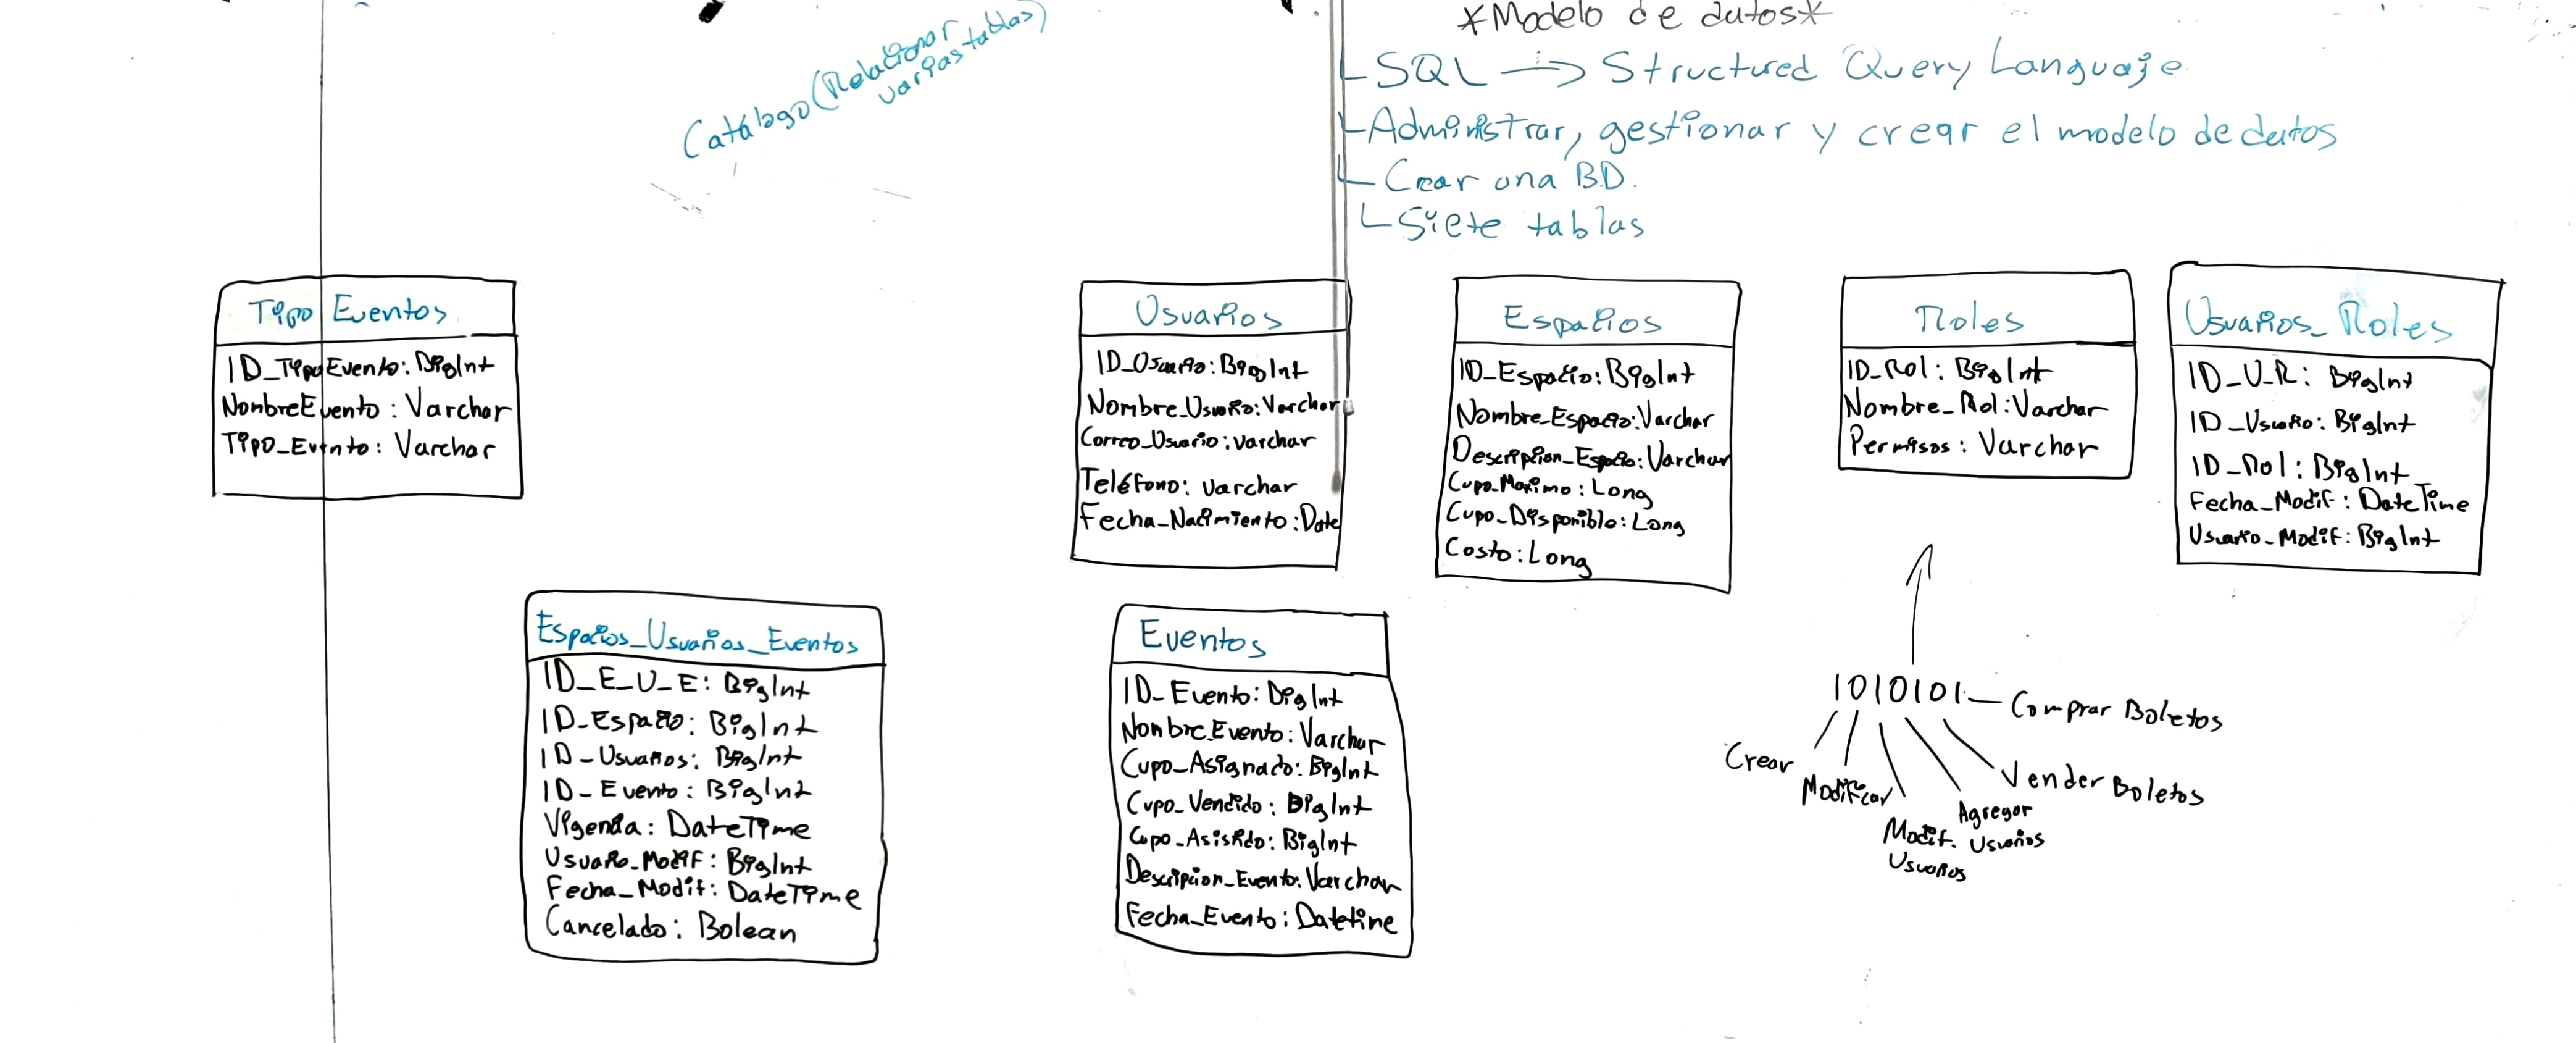 *Modelo de datos*
SQL → Structured Query Languaje
Administrar, gestionar y crear el modelo de datos
Crear una B.D.
Siete tablas
Catálogo (Relacionar
varias tablas)
Tipo Eventos
ID_TipoEvento: BigInt
NombreEvento: Varchar
Tipo_Evento: Varchar
Usuarios
ID_Usuario: BigInt
Nombre_Usuario: Varchar
Correo_Usuario: Varchar
Teléfono: Varchar
Fecha_Nacimiento: Date
Espacios
ID_Espacio: BigInt
Nombre_Espacio: Varchar
Descripcion_Espacio: Varchar
Cupo_Maximo: Long
Cupo_Disponible: Long
Costo: Long
Roles
ID_Rol: BigInt
Nombre_Rol: Varchar
Permisos: Varchar
Usuarios_Roles
ID_U_R: BigInt
ID_Usuario: BigInt
ID_Rol: BigInt
Fecha_Modif: DateTime
Usuario_Modif: BigInt
Espacios_Usuarios_Eventos
ID_E_U_E: BigInt
ID_Espacio: BigInt
ID_Usuarios: BigInt
ID_Evento: BigInt
Vigencia: DateTime
Usuario_Modif: BigInt
Fecha_Modif: DateTime
Cancelado: Bolean
Eventos
ID_Evento: BigInt
Nombre_Evento: Varchar
Cupo_Asignado: BigInt
Cupo_Vendido: BigInt
Cupo_Asistido: BigInt
Descripcion_Evento: Varchar
Fecha_Evento: Datetime
1010101
Comprar Boletos
Crear
Modificar
Modif.
Usuarios
Agregar
Usuarios
Vender Boletos